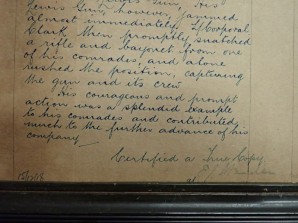 Lewis Gun, however, jammed
almost immediately. L/Corporal
Clark then promptly snatched
a rifle and bayonet from one
of his comrades, and alone
rushed the position, capturing
the gun and its crew.
His courageous and prompt
action was a splendid example
to his comrades and contributed
much to the further advance of his
company
Certified a True Copy